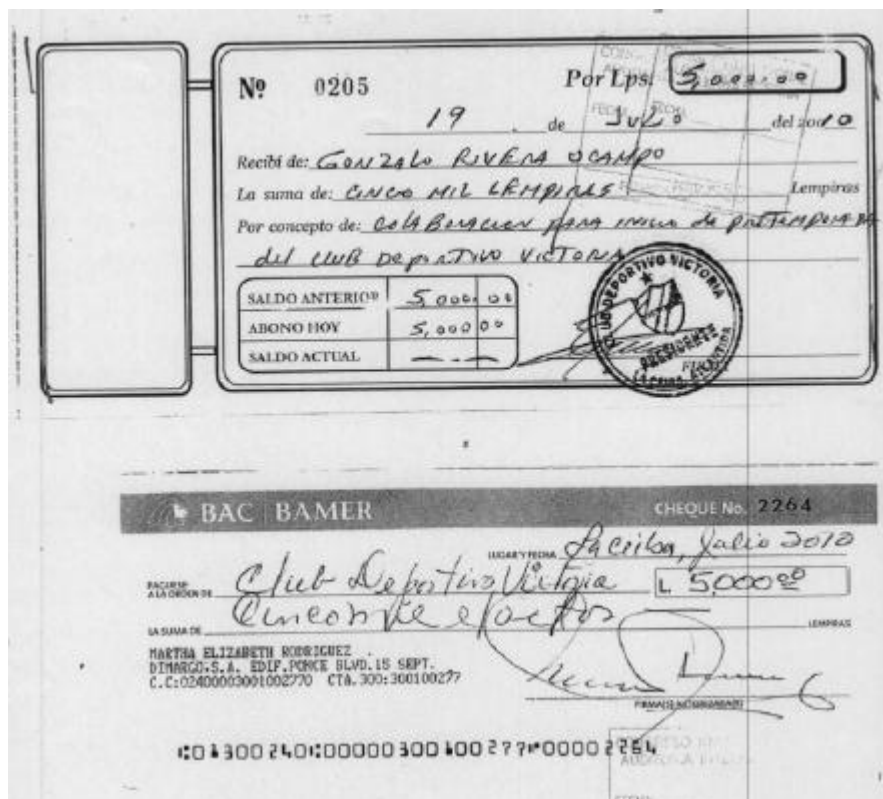 Nº 0205 Por Lps. 5,000.00
19 de Julio del 20010
Recibí de: GONZALO RIVERA OCAMPO
La suma de: CINCO MIL LEMPIRAS Lempiras
Por concepto de: COLABORACION PARA INICIO de PRETEMPORADA
del CLUB DEPORTIVO VICTORIA
SALDO ANTERIOR 5,000.00
ABONO HOY 5,000 00
SALDO ACTUAL
CLUB DEPORTIVO VICTORIA
PRESIDENTE
FIRMA
LA CEIBA,
BAC BAMER CHEQUE No. 2264
LUGAR Y FECHA La Ceiba, Julio 2010
PAGUESE A LA ORDEN DE Club Deportivo Victoria L 5,000.00
LA SUMA DE Cinco mil exactos LEMPIRAS
MARTHA ELIZABETH RODRIGUEZ
DIMARGO.S.A. EDIF.PONCE BLVD.15 SEPT.
C.C:02400003001002770 CTA.300:300100277